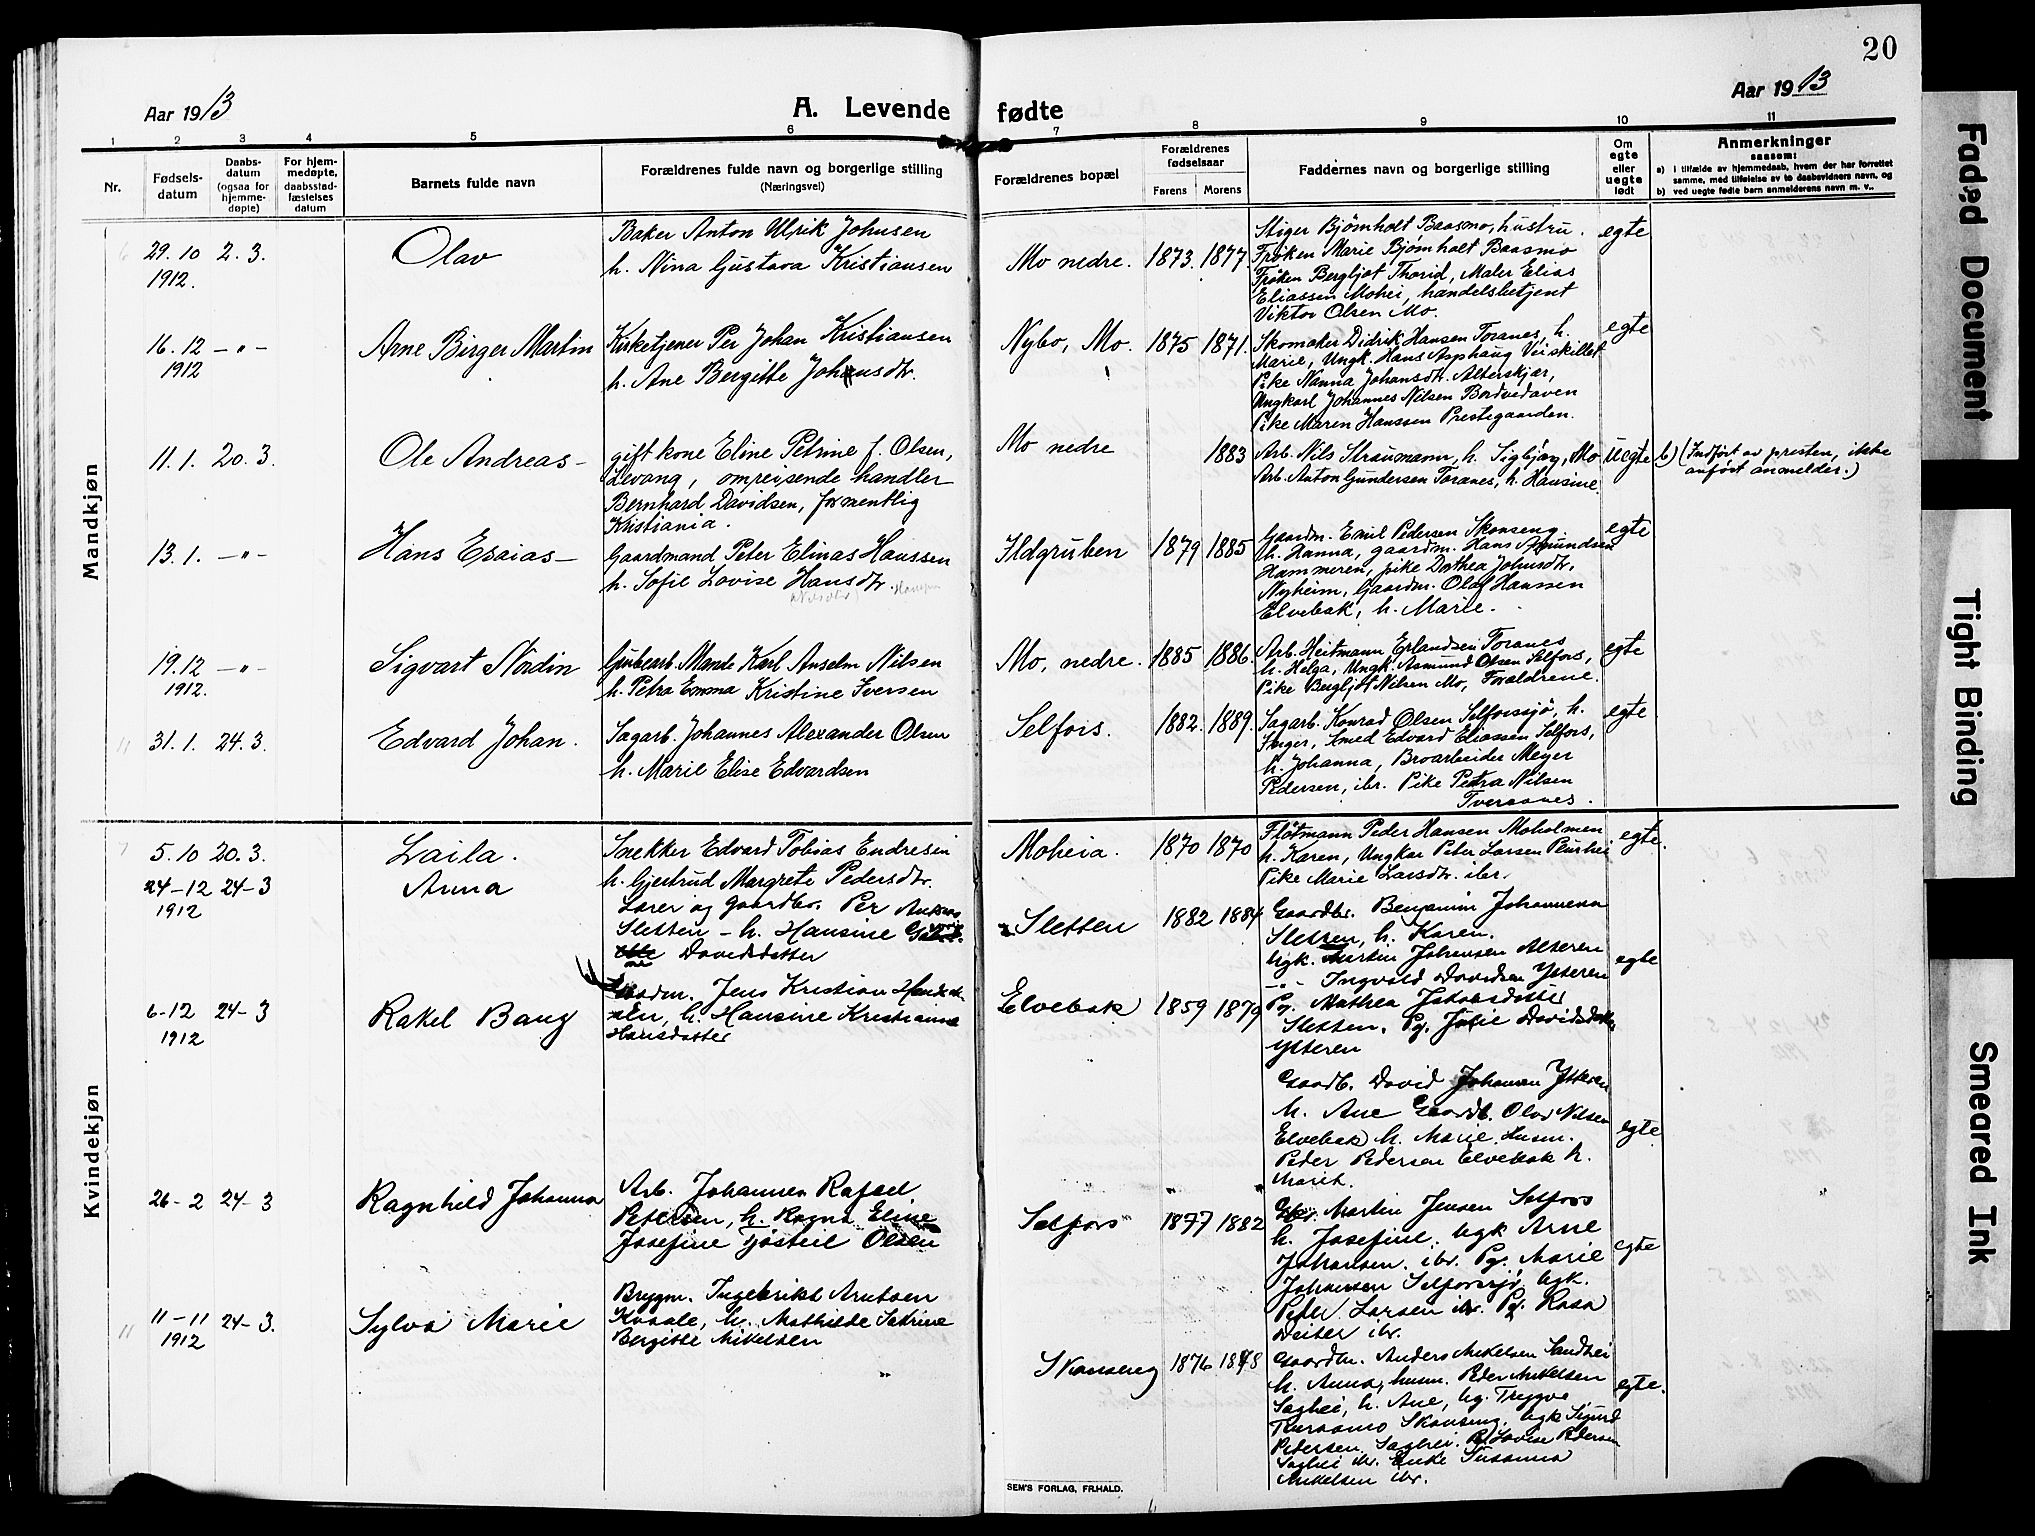 20
Aar 1913
A. Levende fødte
Aar 1913
1 2 3 4 5 6 7 8 9 10 11
Nr.
Fødsels-
datum
Daabs-
datum
(ogsaa for
hjemme-
døpte)
For hjem-
medøpte,
daabsstad-
fæstelses
datum
Barnets fulde navn
Forældrenes fulde navn og borgerlige stilling
(Næringsvei)
Forældrenes bopæl
Forældrenes
fødselsaar
Farens Morens
Faddernes navn og borgerlige stilling
Om
egte
eller
uegte
født
Anmerkninger
saasom:
a) i tilfælde av hjemmedaab, hvem der har forrettet
samme, med tilføielse av to daabsvidners navn, og
b) ved uegte fødte barn anmelderens navn m. v..
Mandkjøn
6 29.10 2.3.
1912.
Olav
Baker Anton Ulrik Johnsen
h. Nina Gustava Kristiansen
Mo nedre. 1873. 1877.
Stiger Bjørnholt Baasmo, hustru.
Frøken Marie Bjørnholt Baasmo
Frøken Bergljot Thorid, Maler Elias
Eliassen Mohei, handelsbetjent
Viktor Olsen Mo.
egte
16.12 –"–
1912
Arne Birger Martin
Kirketjener Per Johan Kristiansen
h. Ane Bergitte Johansdtr.
Nybo, Mo. 1875 1871.
Skomaker Didrik Hansen Toranes, h.
Marie, Ungk. Hans Asphaug Veiskillet
Pike Nanna Johansdtr. Alterskjær,
Ungkarl Johannes Nilsen Bordvedaven
Pike Maren Hanssen Prestegaarden.
egte
11.1. 20.3.
Ole Andreas –
gift kone Eline Petrine f. Olsen,
Levang, omreisende handler
Bernhard Davidsen, formentlig
Kristiania.
Mo nedre 1883
Arb. Nils Straumann, h. Sigbjøn, Mo
Arb. Anton Gundersen Toranes, h. Hansine.
uegte
b) (Indført av presten, ikke
anført anmelder.)
13.1. –"–
Hans Esaias –
Gaardmand Peter Elinas Hanssen
h. Sofie Lovise Hansdtr.
Ildgruben 1879 1885
Gaardm. Emil Pedersen Skonseng
h. Hanna, gaardm. Hans Amundsen
Hammeren, pike Dorthea Johnsdtr.
Nyheim, Gaardm. Olaf Hanssen
Elvebak, h. Marie.
egte
19.12 –"–
1912.
Sigvart Nordin
Grubearb. Mande Karl Anselm Nilsen
h. Petra Emma Kristine Iversen
Mo, nedre. 1885 1886.
Arb. Heitmann Erlandsen Toranes
h. Helga, Ungk. Asmund Olsen Selfors,
Pike Bergljot Nilsen Mo, Forældrene.
egte
11 31.1. 24.3.
Edvard Johan.
Sagarb. Johannes Alexander Olsen
h. Marie Elise Edvardsen
Selfors. 1882. 1889.
Sagarb. Konrad Olsen Selforssjø, h.
Inger, Smed Edvard Eliassen Selfors,
h. Johanna, Broarbeider Meyer
Pedersen, ibr. Pike Petra Nilsen
Tveraanes.
egte
Kvindekjøn
7 5.10 20.3.
Laila.
Snekker Edvard Tobias Endresen
h. Gjertrud Margrete Pedersdtr.
Moheia. 1870 1870
Fløtmann Peder Hansen Moholmen
h. Karen, Ungkar Peter Larsen
Pike Marie Larsdtr. ibr.
egte.
24–12 24–3
1912
Anna
Lærer og gaardbr. Per
Sletten – h. Hansine
Davidsdatter
Sletten 1882 1884
Gaardbr. Benjamin Johannesen
Sletten, h. Karen.
Ugk. Martin Johansen Alteren
–"– Ingvald Davidsen Ytteren
Pg. Mathea
Sletten, Pg. Julie Davidsdatter
Ytteren
egte
6–12 24–3
1912
Rakel Bang
Gaardm. Jens Kristian
h. Hansine Kristianne
Hansdatter
Elvebak 1859 1879
Gaardb. David Johansen Ytteren
h. Ane Gaardb. Olav Nilsen
Elvebak h. Marie. Husm.
Peder Pedersen Elvebak h.
Marit.
egte.
26–2 24–3
Ragnhild Johanna
Arb. Johannes Rafael
Petersen, h. Ragna Eline
Josefine Olsen
Selfors 1877 1882
Martin Jensen Selfors
h. Josefine, Ugk Arne
Johansen. ibr. Pg. Marie
Johansen Selforssjø, Ugk.
Peter Larsen ibr. Pg. Rosa
ibr.
egte
11 11–11 24–3.
1912
Sylva Marie
Brygm. Ingebrikt Arntsen
Kvaale, h. Mathilde
Bergitte Mikelsen
Skonseng 1876 1878
Gaardbr. Anders Mikelsen Sandhei
h. Anna, husm. Peder Mikelsen
Saghei, h. Ane, Ug. Trygve
Tveraamo Skonseng, Ugk Sigurd
Petersen Saghei. Pg Lovise Pedersen
Saghei ibr. Enke Susanna
Mikelsen ibr.
egte.
SEM'S FORLAG, FR.HALD.
Faded Document
Tight Binding
Smeared Ink